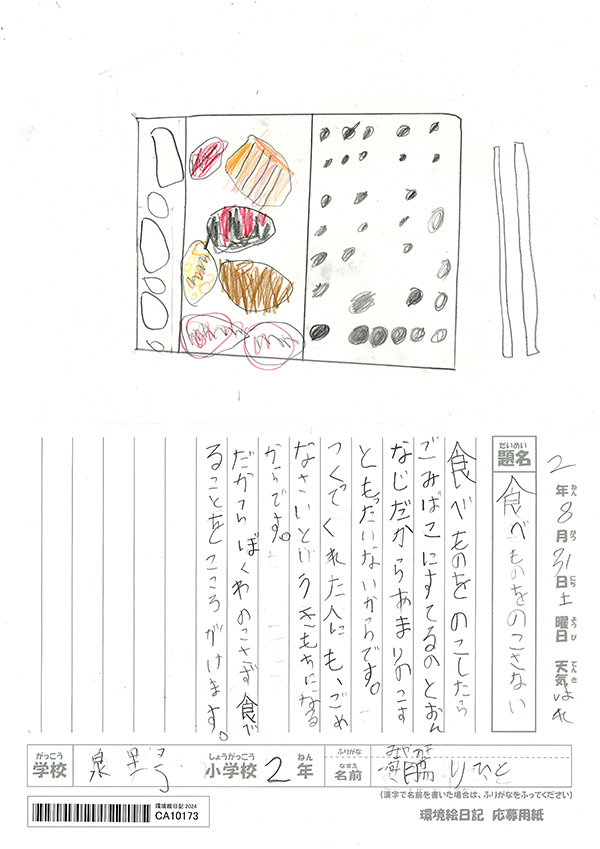 2年8月31日土曜日 天気はれ
ねん がつ にち ようび てんき
だいめい
題名
食べものをのこさない
食べものをのこしたら
ごみばこにすてるのとおん
なじだからあまりのこす
ともったいないからです。
つくってくれた人にも、ごめ
なさいというきもちになる
からです。
だからぼくわのこさず食べ
ることをこころがけます。
がっこう
学校
泉野
しょうがっこう
小学校
2
ねん
年
ふりがな
なまえ
名前
脇りひと
(漢字で名前を書いた場合は、ふりがなをふってください)
環境絵日記2024
CA10173
環境絵日記 応募用紙